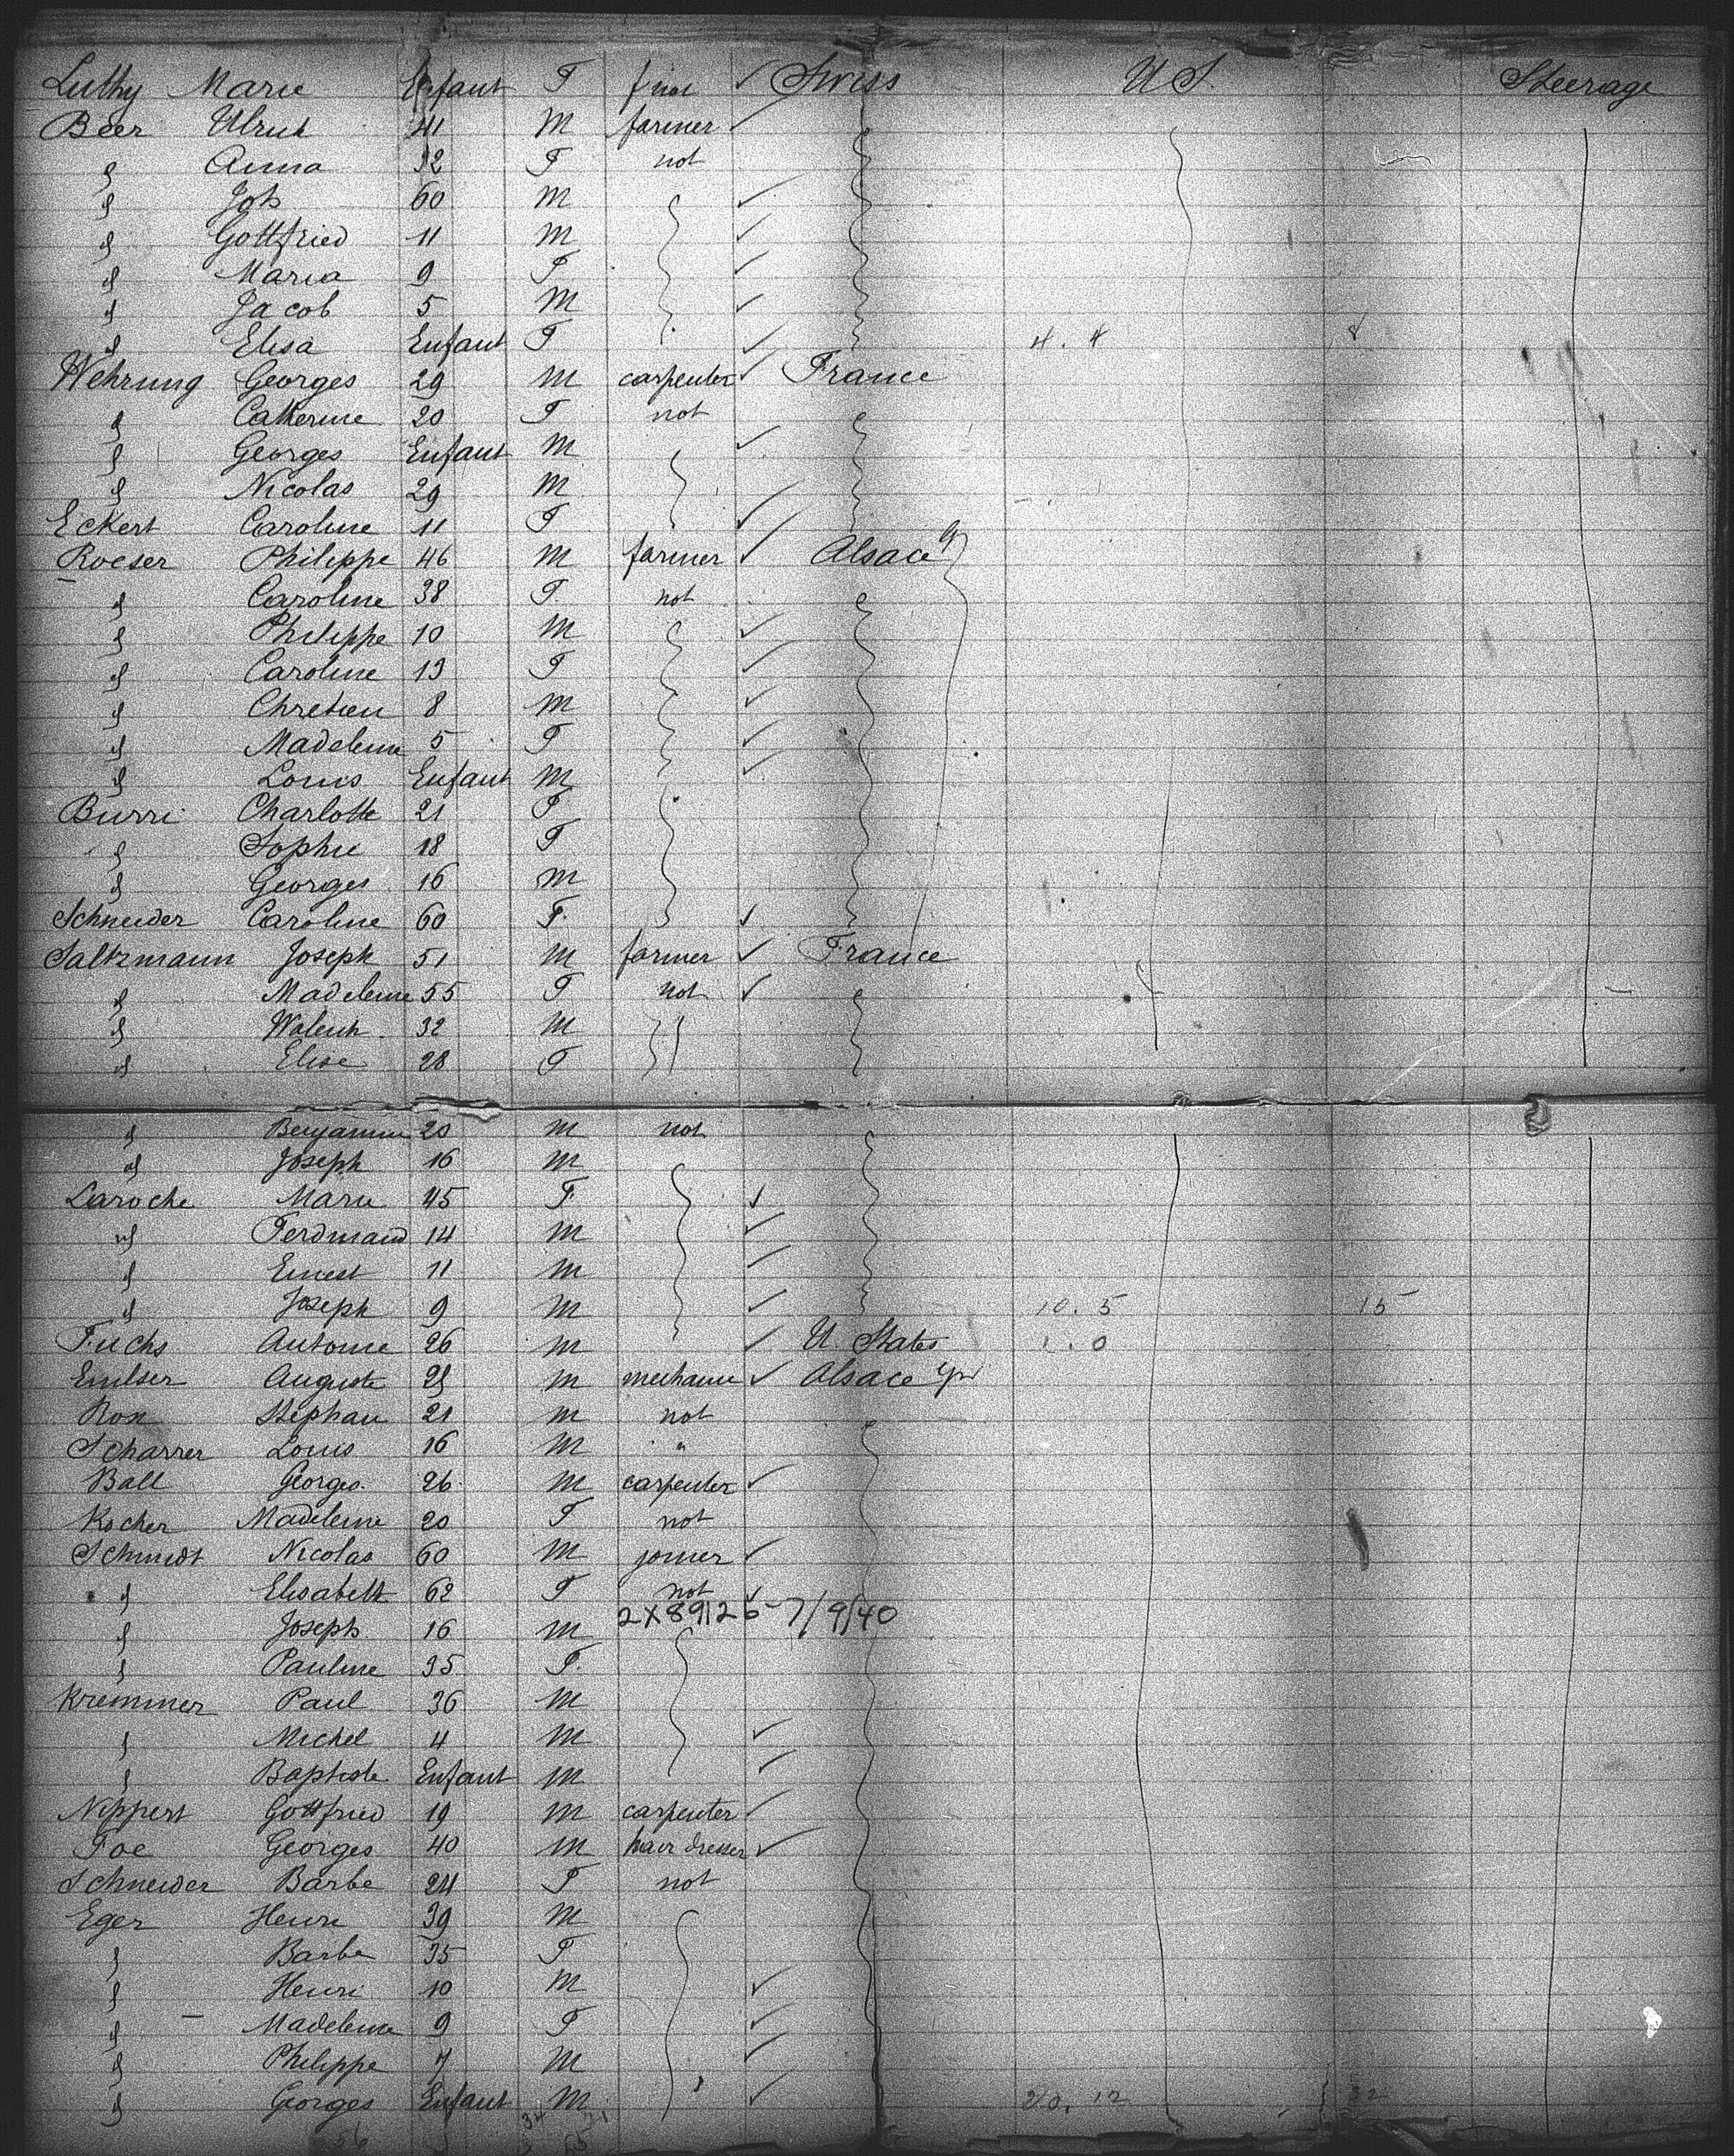 Luthy Marie Enfant F ✓ Swiss U S. Steerage
Beer Ulrich 41 M farmer ✓
" Anna 32 F not
" Joh 60 M ✓
" Gottfried 11 M ✓
" Maria 9 F ✓
" Jacob 5 M ✓
" Elisa Enfant F ✓ 4. 4 8
Wehrung Georges 29 M carpenter ✓ France
" Catherine 20 F not
" Georges Enfant M ✓
" Nicolas 29 M
Eckert Caroline 11 F ✓
Roeser Philippe 46 M farmer ✓ Alsace
" Caroline 38 F. not
" Philippe 10 M ✓
" Caroline 13 F ✓
" Chretien 8 M ✓
" Madeleine 5 F ✓
" Louis Enfant M ✓
Burri Charlotte 21 F
" Sophie 18 F
" Georges 16 M
Schneider Caroline 60 F. ✓
Saltzmann Joseph 51 M farmer ✓ France
" Madeleine 55 F not ✓
" 32 M
" Elise 28 F
" Benjamin 20 M not
" Joseph 16 M
Laroche Marie 45 F ✓
" Ferdinand 14 M ✓
" Ernest 11 M ✓
" Joseph 9 M ✓ 10. 5 15
Fuchs Antoine 26 M ✓ U. States 1. 0
Emlser Auguste M mechanic ✓ Alsace
Rox Stephan 21 M not
Scharrer Louis 16 M "
Ball Georges 26 M carpenter ✓
Kocher Madeleine 20 F not
Schmidt Nicolas 60 M joiner ✓
" Elisabeth 62 F not ✓
2X89126-7/9/40
" Joseph 16 M
" Pauline 35 F.
Kremmer Paul 36 M
" Michel 4 M ✓
" Baptiste Enfant M ✓
Nippert Gottfried 19 M carpenter ✓
Foe Georges 40 M hair dresser ✓
Schneider Barbe 24 F not
Eger Henri 39 M
" Barbe 35 F
" Henri 10 M ✓
" Madeleine 9 F ✓
" Philippe 7 M ✓
" Georges Enfant M ✓ 20. 12 32